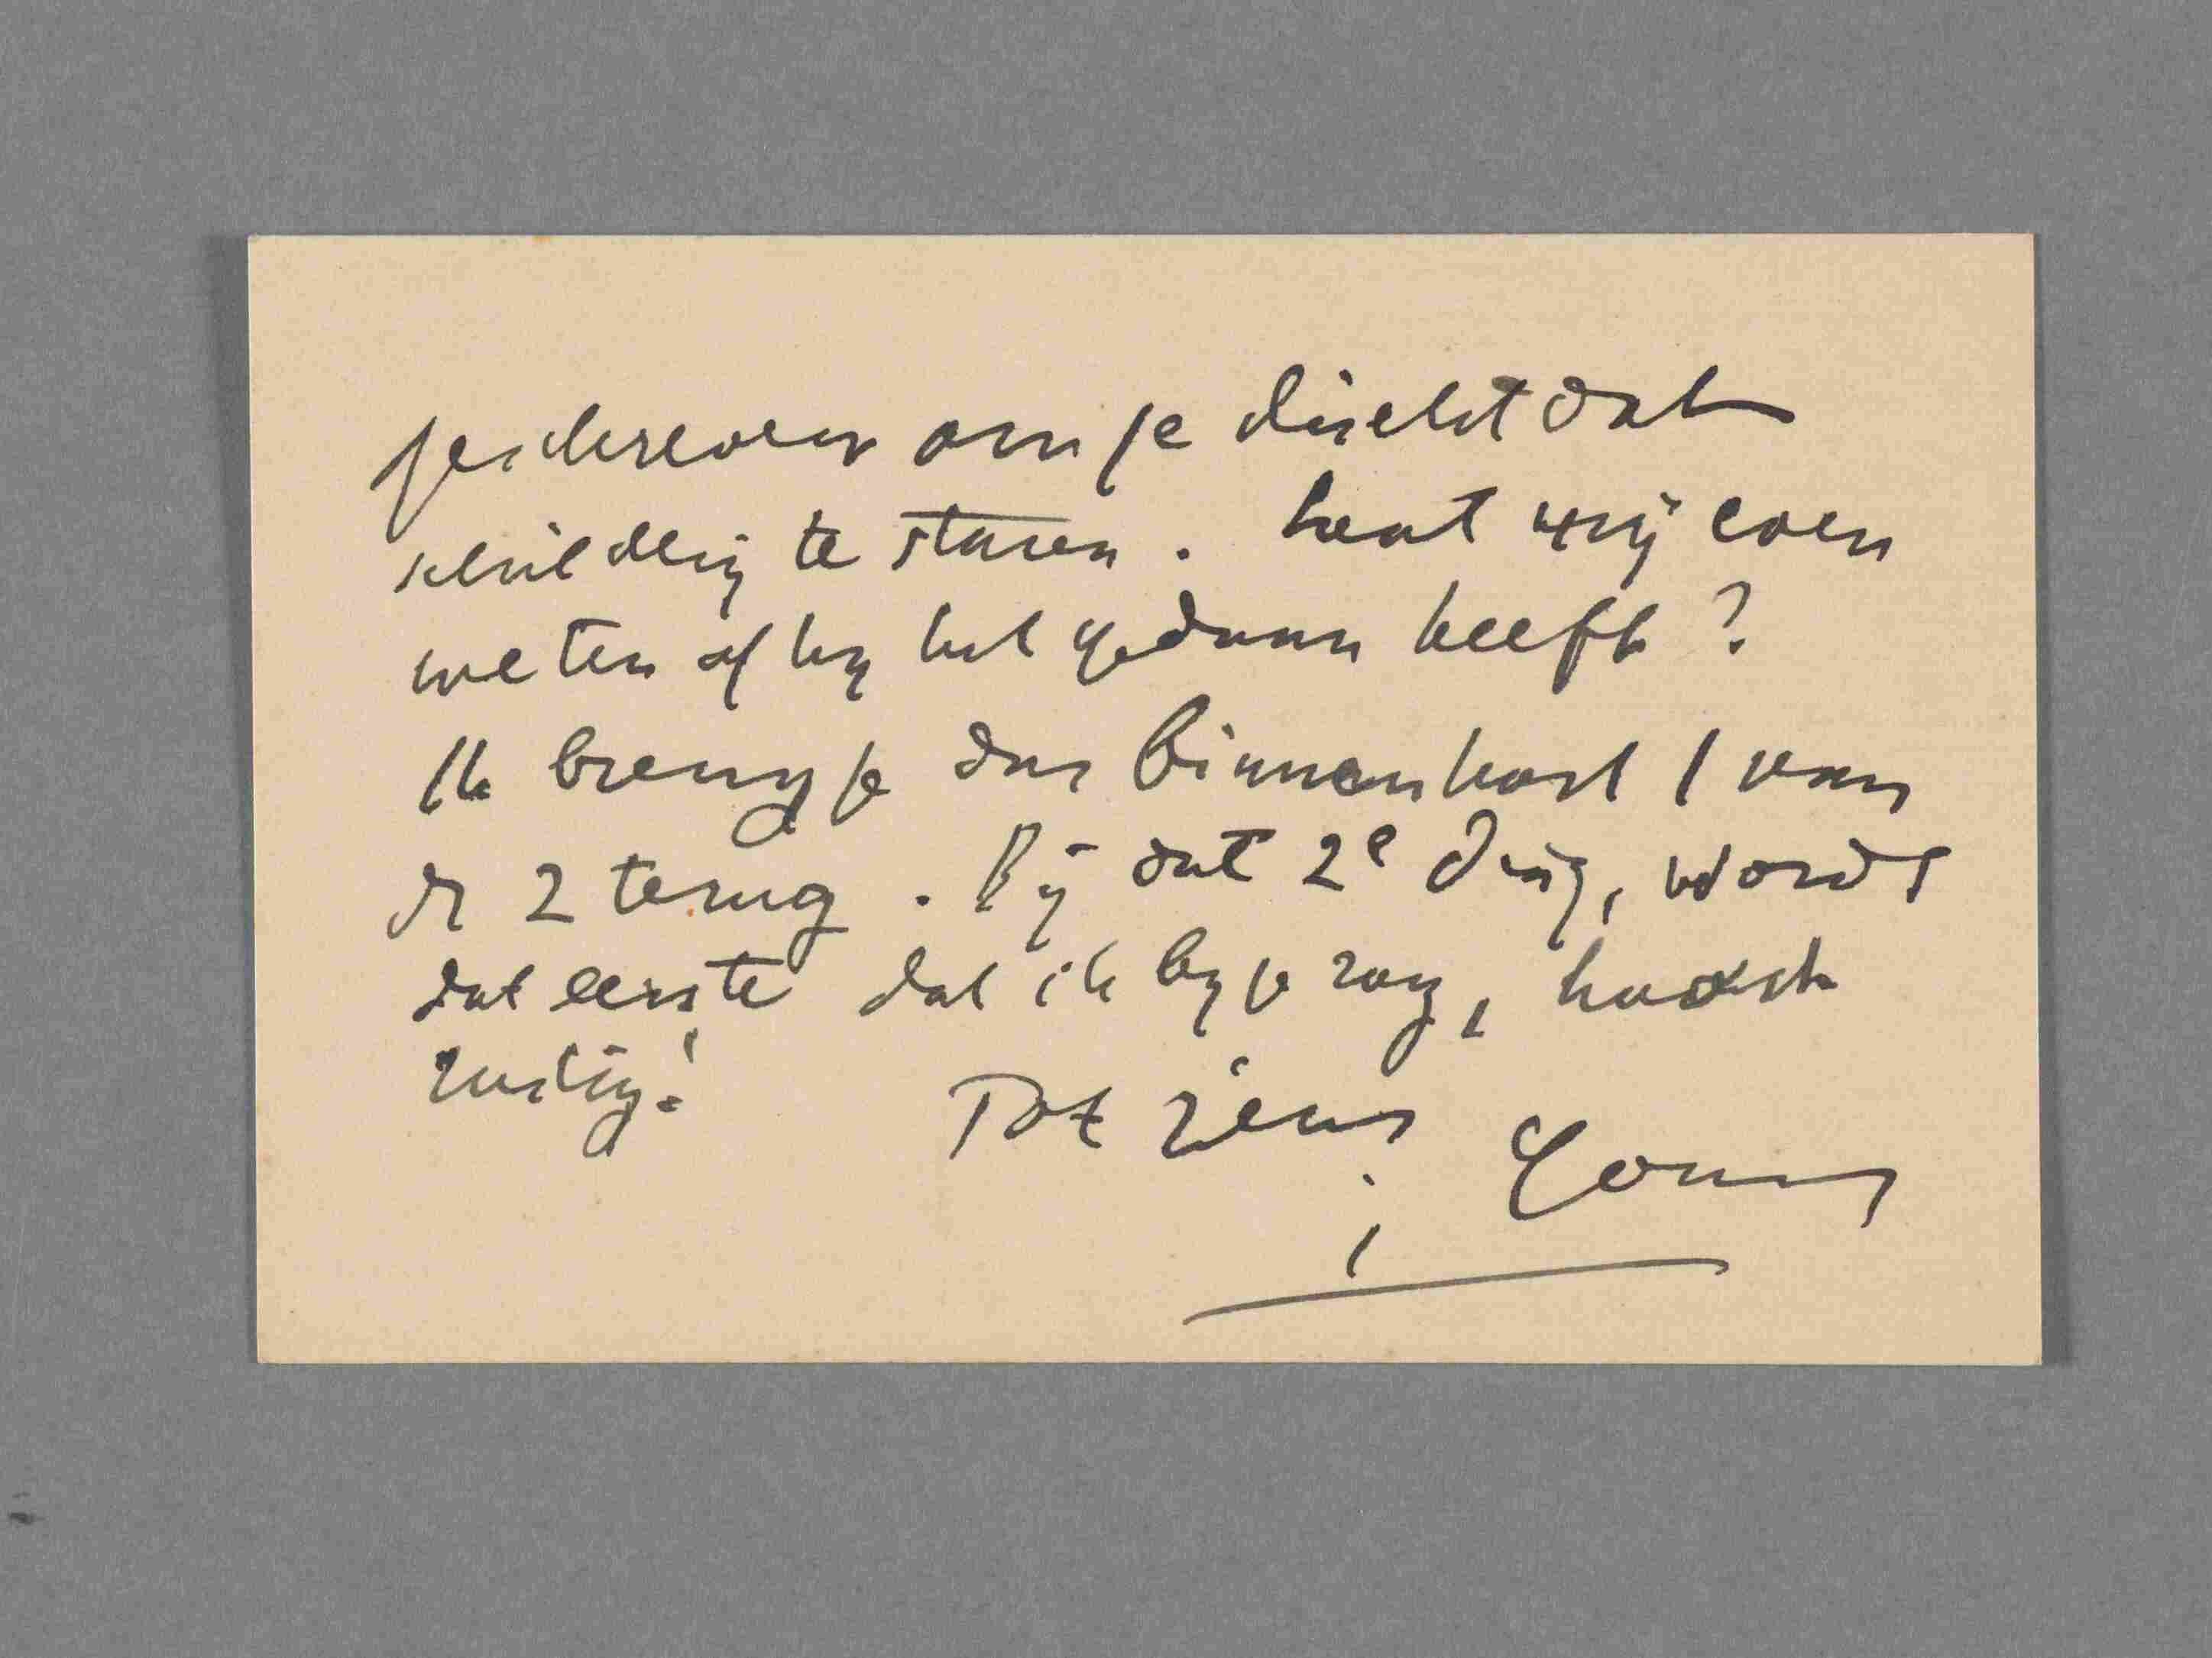 geschreven om je direkt dat
schilderij te sturen. Laat mij even
weten of hij het gedaan heeft?
Ik breng je dus binnenkort 1 van
de 2 terug. Bij dat 2e ding, wordt
dat eerste dat ik bij je zag, haast
rustig!
Tot ziens